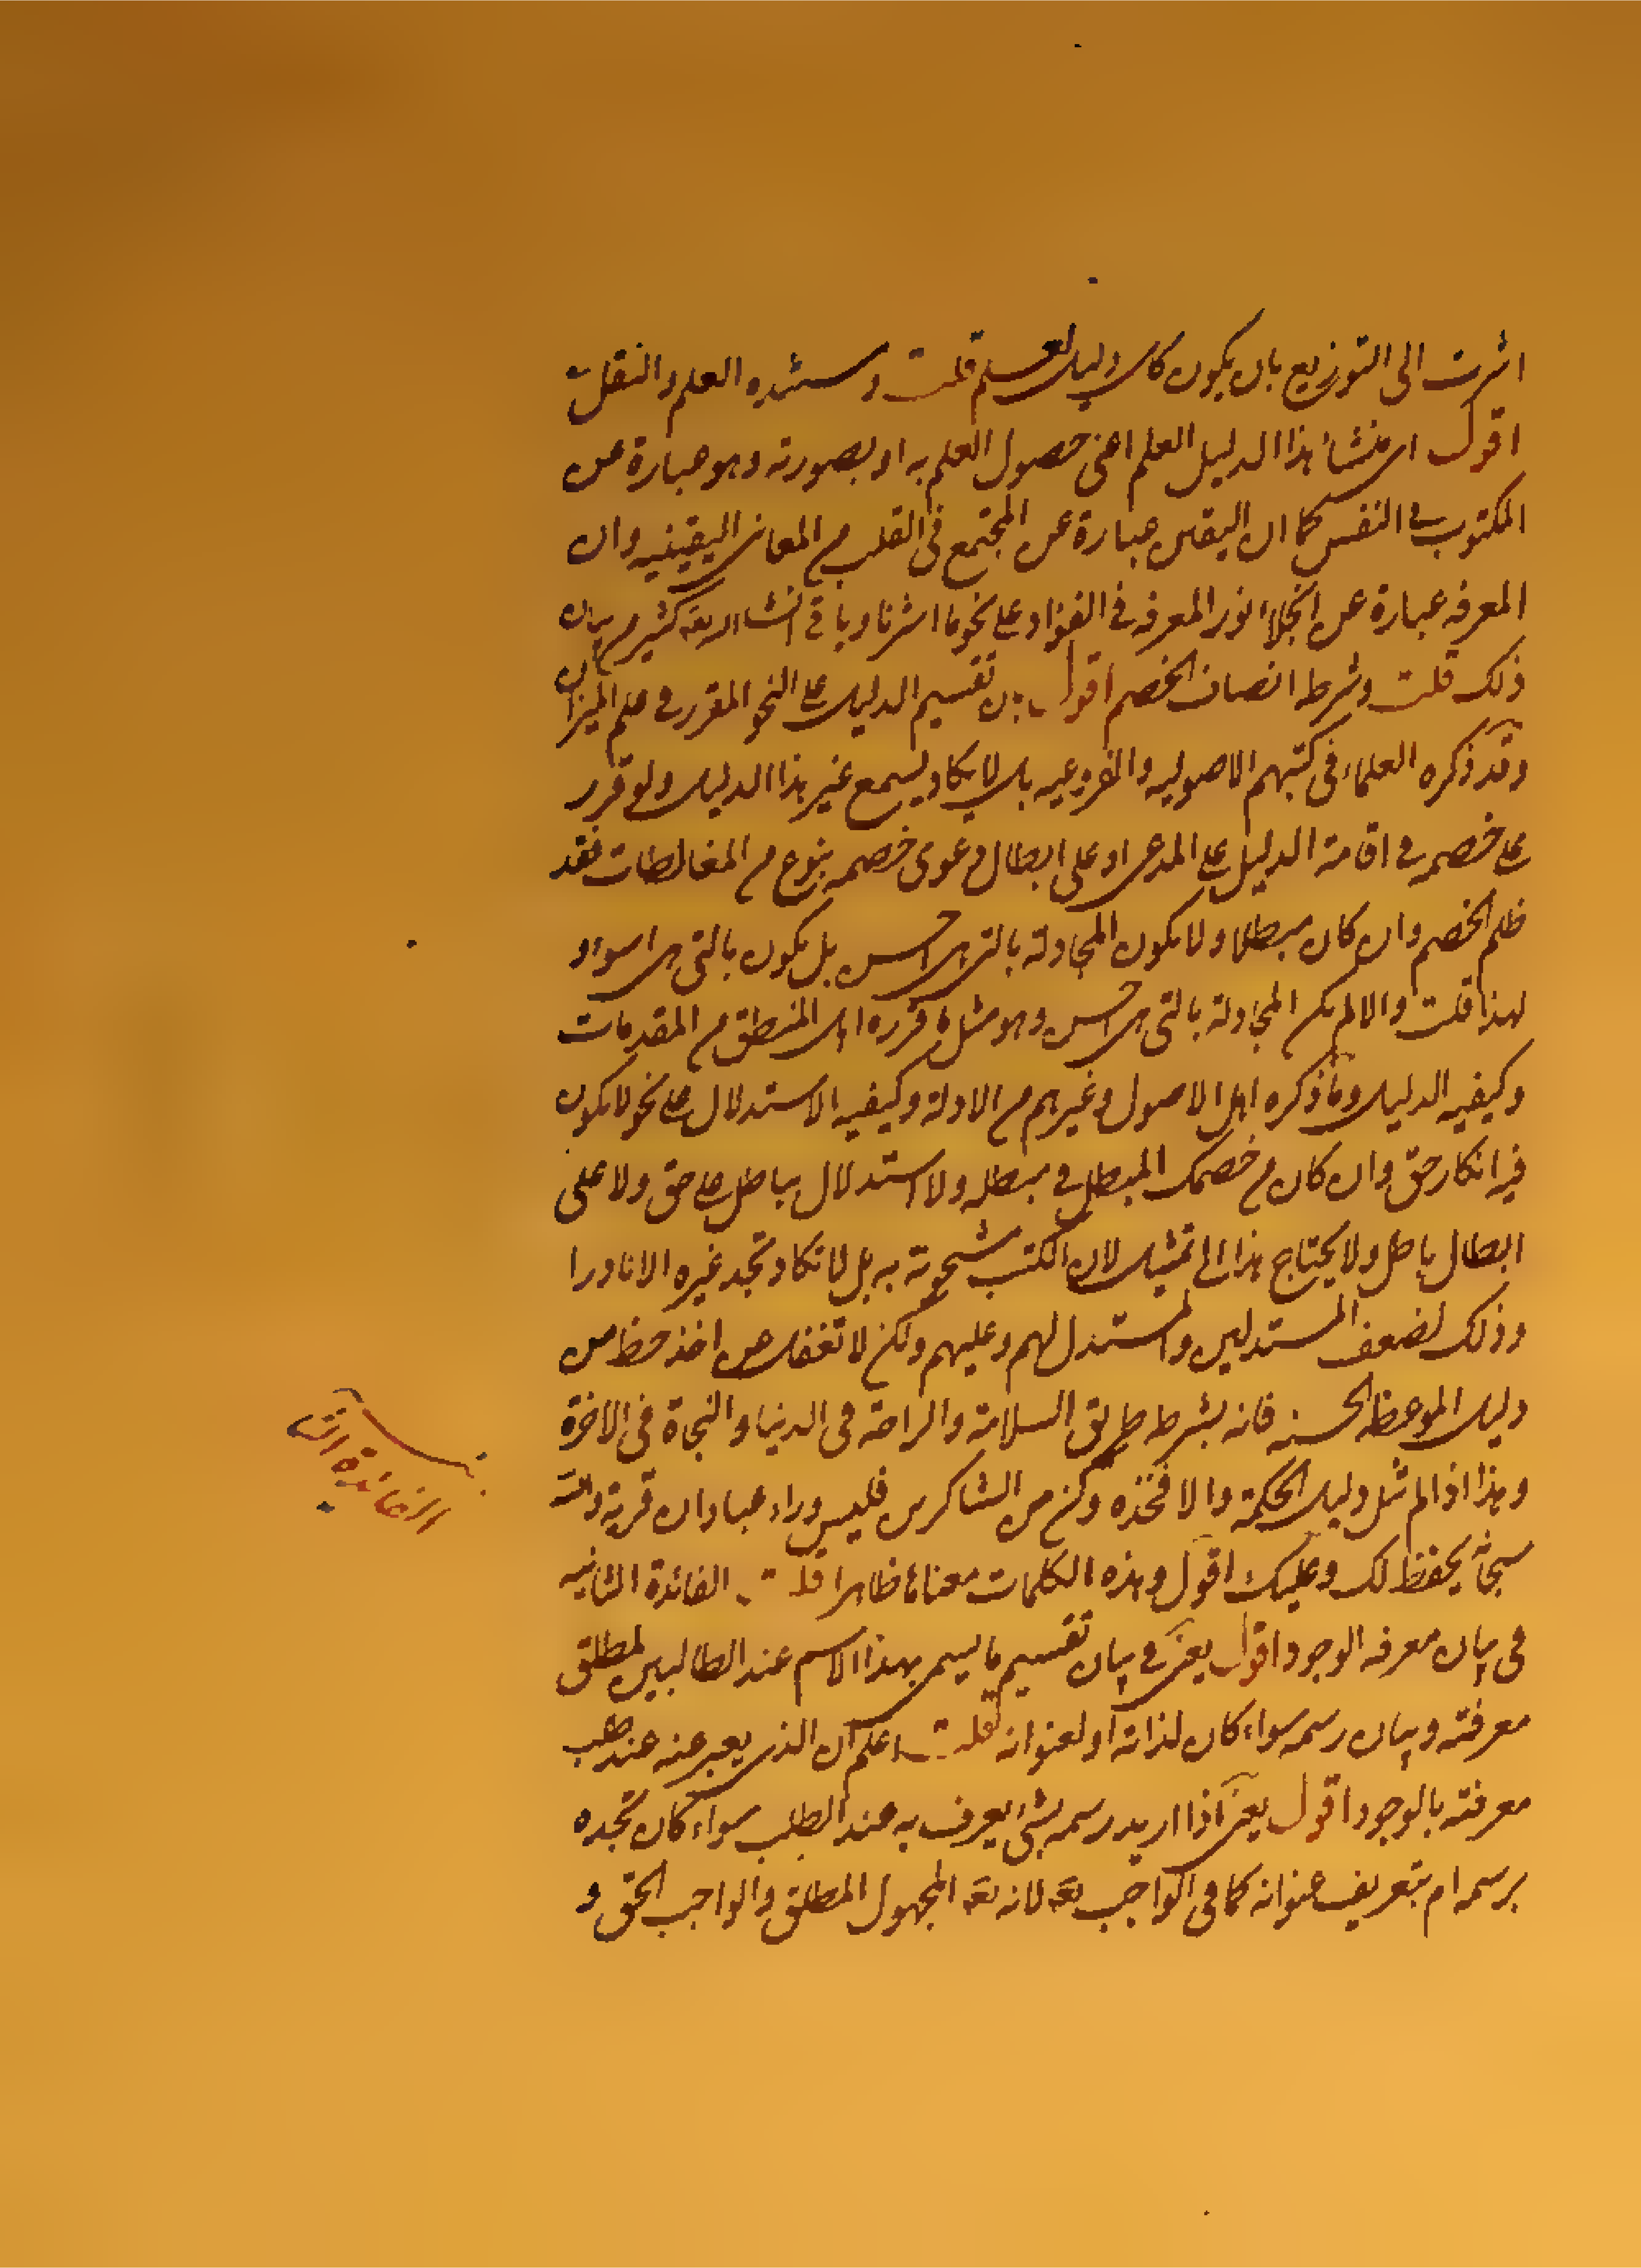 اشرت الى التوزيع بان يكون كل دليل لعلم قلت ومستنده العلم والنقل
اقول اى منشأ هذا الدليل العلم اعنى حصول العلم به او بصورته وهو عبارة عن
المكتوب فى النفس كما ان اليقين عبارة عن المجتمع فى القلب من المعانى اليقينيه وان
المعرفه عبارة عن انجلاء نور المعرفه فى الفؤاد على نحو ما اشرنا وياتى انشاء الله تعه كثير من بيان
ذلك قلت وشرطه انصاف الخصم اقول بان تقسيم الدليل على النحو المقرر فى علم الميزان
وقد ذكره العلماء فى كتبهم الاصوليه والفروعيه بل لا يكاد يسمع غير هذا الدليل ولو قرر
على خصمه فى اقامة الدليل على المدعى او على ابطال دعوى خصمه بنوع من المغالطات فقد
ظلم الخصم وان كان مبطلا ولا يكون المجادلة بالتى هى احسن بل يكون بالتى هى اسوء و
لهذا قلت والا لم يكن المجادلة بالتى هى احسن وهو مثل ما قرره اهل المنطق من المقدمات
وكيفيه الدليل وما ذكره اهل الاصول وغيرهم من الادلة وكيفيه الاستدلال على نحو لا يكون
فيه انكار حق وان كان من خصمك المبطل فى مبطله ولا استدلال بباطل على حق ولا على
ابطال باطل ولا يحتاج هذا الى تمثيل لان الكتب مشحونة به بل لا تكاد تجد غيره الا نادرا
وذلك لضعف المستدلين والمستدل لهم وعليهم ولكن لا تغفل عن اخذ حظ من
دليل الموعظه الحسنه فانه بشرطه طريق السلامة والراحة فى الدنيا والنجاة فى الاخرة
وهذا اذا لم تنل دليل الحكمة والا فخذه وكن من الشاكرين فليس وراء عبادان قرية والله
سبحانه يحفظ لك وعليك اقول وهذه الكلمات معناها ظاهر قلت الفائدة الثانيه
فى بيان معرفه الوجود اقول يعنى فى بيان تقسيم ما يسمى بهذا الاسم عند الطالبين لمطلق
معرفته وبيان رسمه سواء كان لذاته او لعنوانه قلت اعلم ان الذى يعبر عنه عند طلب
معرفته بالوجود اقول يعنى اذا اريد رسمه بشئ يعرف به عند الطلب سواء كان تجده
برسمه ام بتعريف عنوانه كما فى الواجب تعه لانه تعه المجهول المطلق والواجب الحق و
الفائدة الثانيه